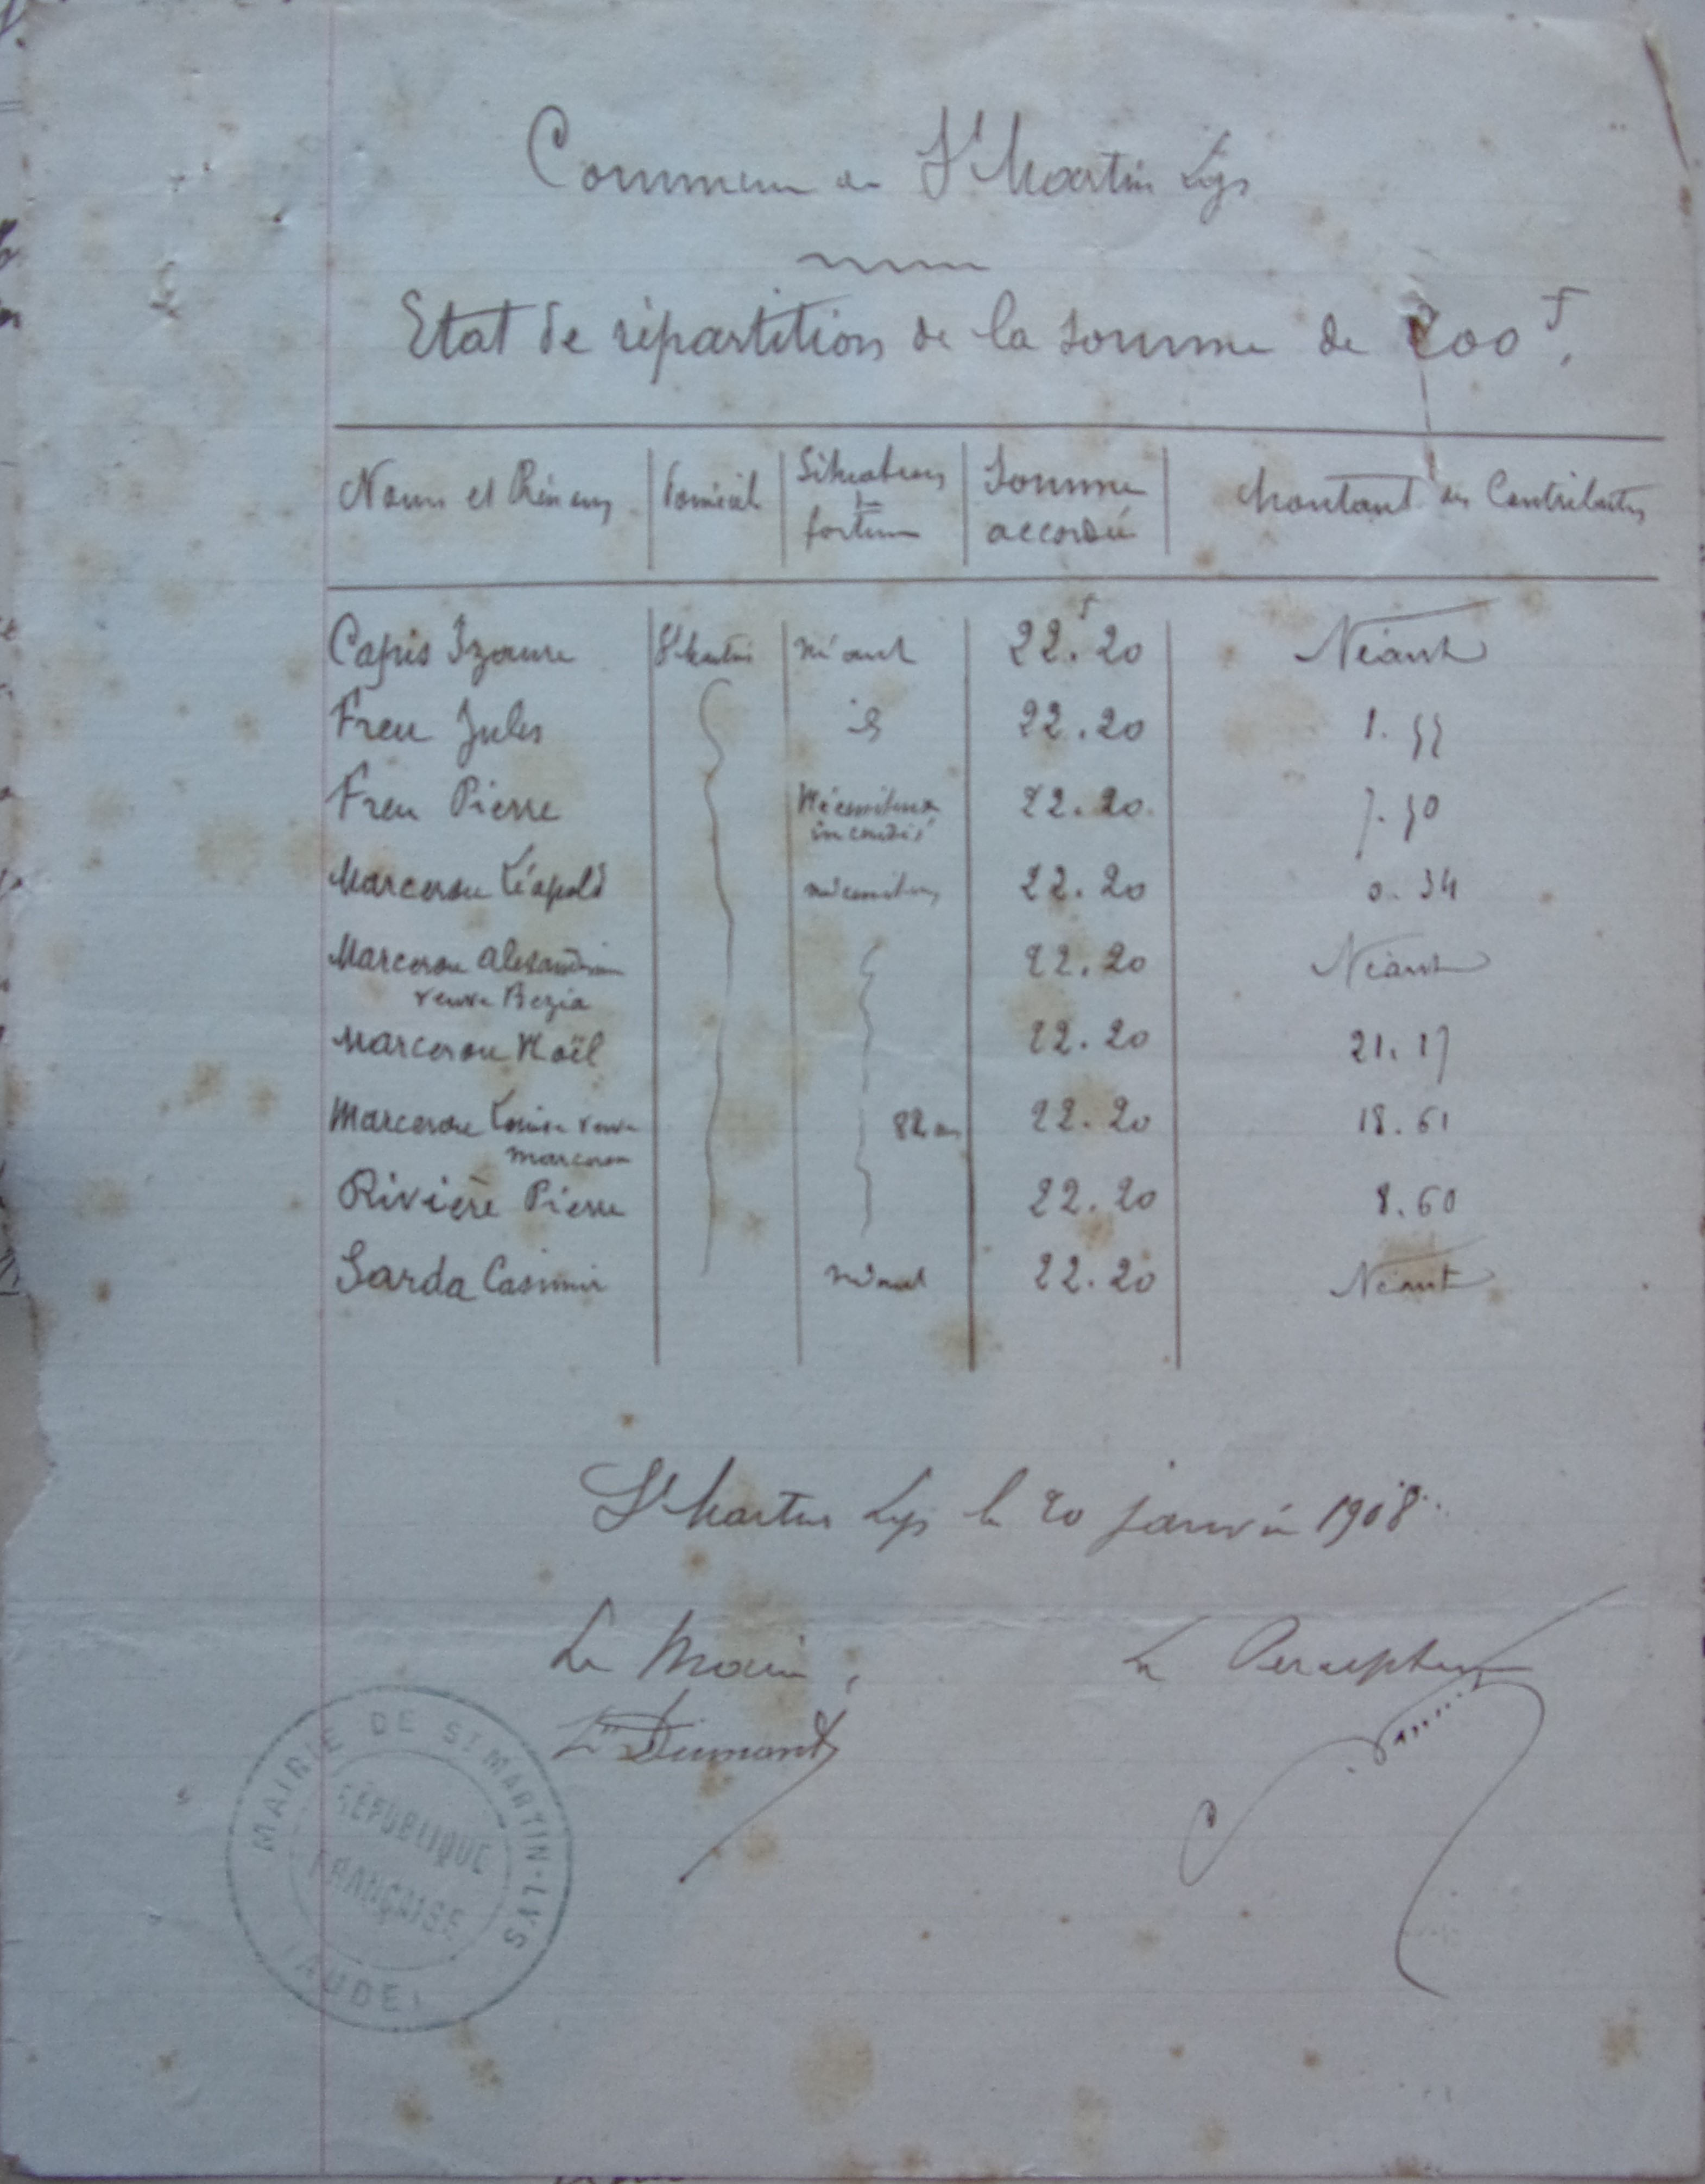 Commune de St Martin Lys
Etat de répartition de la somme de 200 f.
Noms et Prénoms | Domicile | Situation de fortune | Somme accordée | Montant des Contributions
Capis Izaure | St Martin | néant | 22f.20 | Néant
Freu Jules | id | 22.20 | 1.55
Freu Pierre | Nécessiteux incendié | 22.20 | 7.50
Marcerou Léopold | nécessiteux | 22.20 | 0.34
Marcerou Alexandrine veuve Bezia | 22.20 | Néant
Marcerou Noël | 22.20 | 21.17
Marcerou Louise veuve Marcerou | 82 ans | 22.20 | 18.61
Rivière Pierre | 22.20 | 8.60
Sarda Casimir | néant | 22.20 | Néant
St Martin Lys le 20 janvier 1908.
Le Maire, Le Percepteur
Dumont
MAIRIE DE ST MARTIN-LYS
RÉPUBLIQUE
FRANÇAISE
(AUDE)